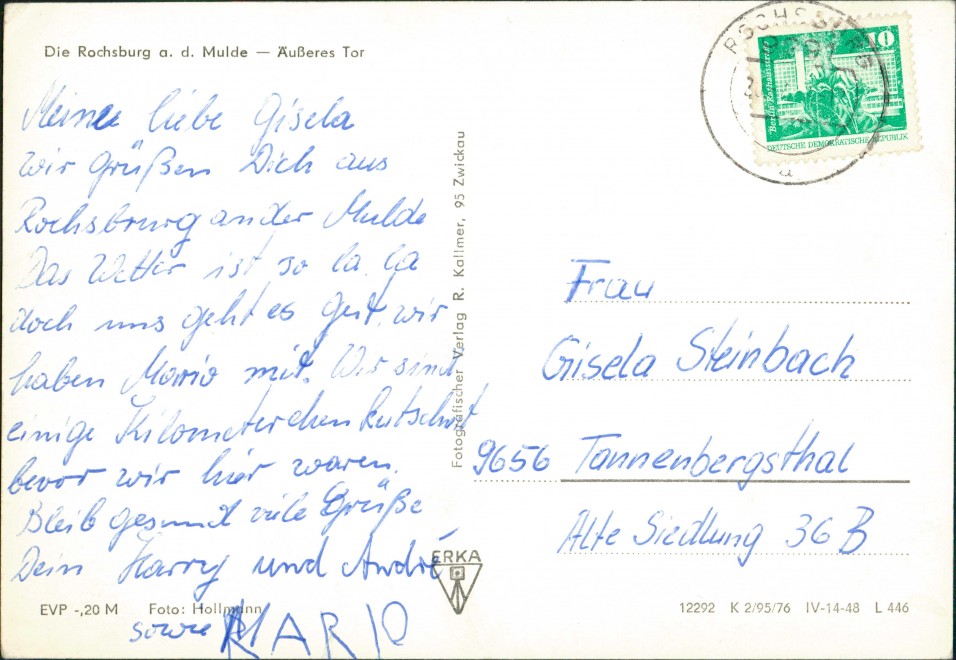 Die Rochsburg a. d. Mulde — Äußeres Tor
Meine liebe Gisela
wir grüßen Dich aus
Rochsbrurg an der Mulde
Das Wetter ist so la la
doch uns geht es gut, wir
haben Mario mit. Wir sind
einige Kilometerchen kutschirt
bevor wir hier waren.
Bleib gesund viele Grüße
Dein Harry und André
sowie MARIO
EVP -,20 M Foto: Hollmann
Fotografischer Verlag R. Kallmer, 95 Zwickau
ERKA
ROCHSBURG
a
10
Berlin,
DEUTSCHE DEMOKRATISCHE REPUBLIK
Frau
Gisela Steinbach
9656 Tannenbergsthal
Alte Siedlung 36 B
12292 K 2/95/76 IV-14-48 L 446